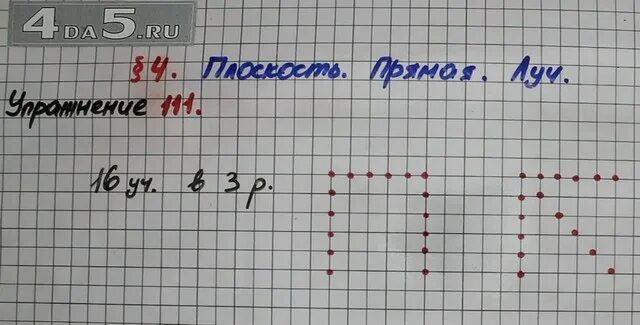 4DA5.RU
§4. Плоскость. Прямая. Луч.
Упражнение 111.
16 уч. в 3 р.